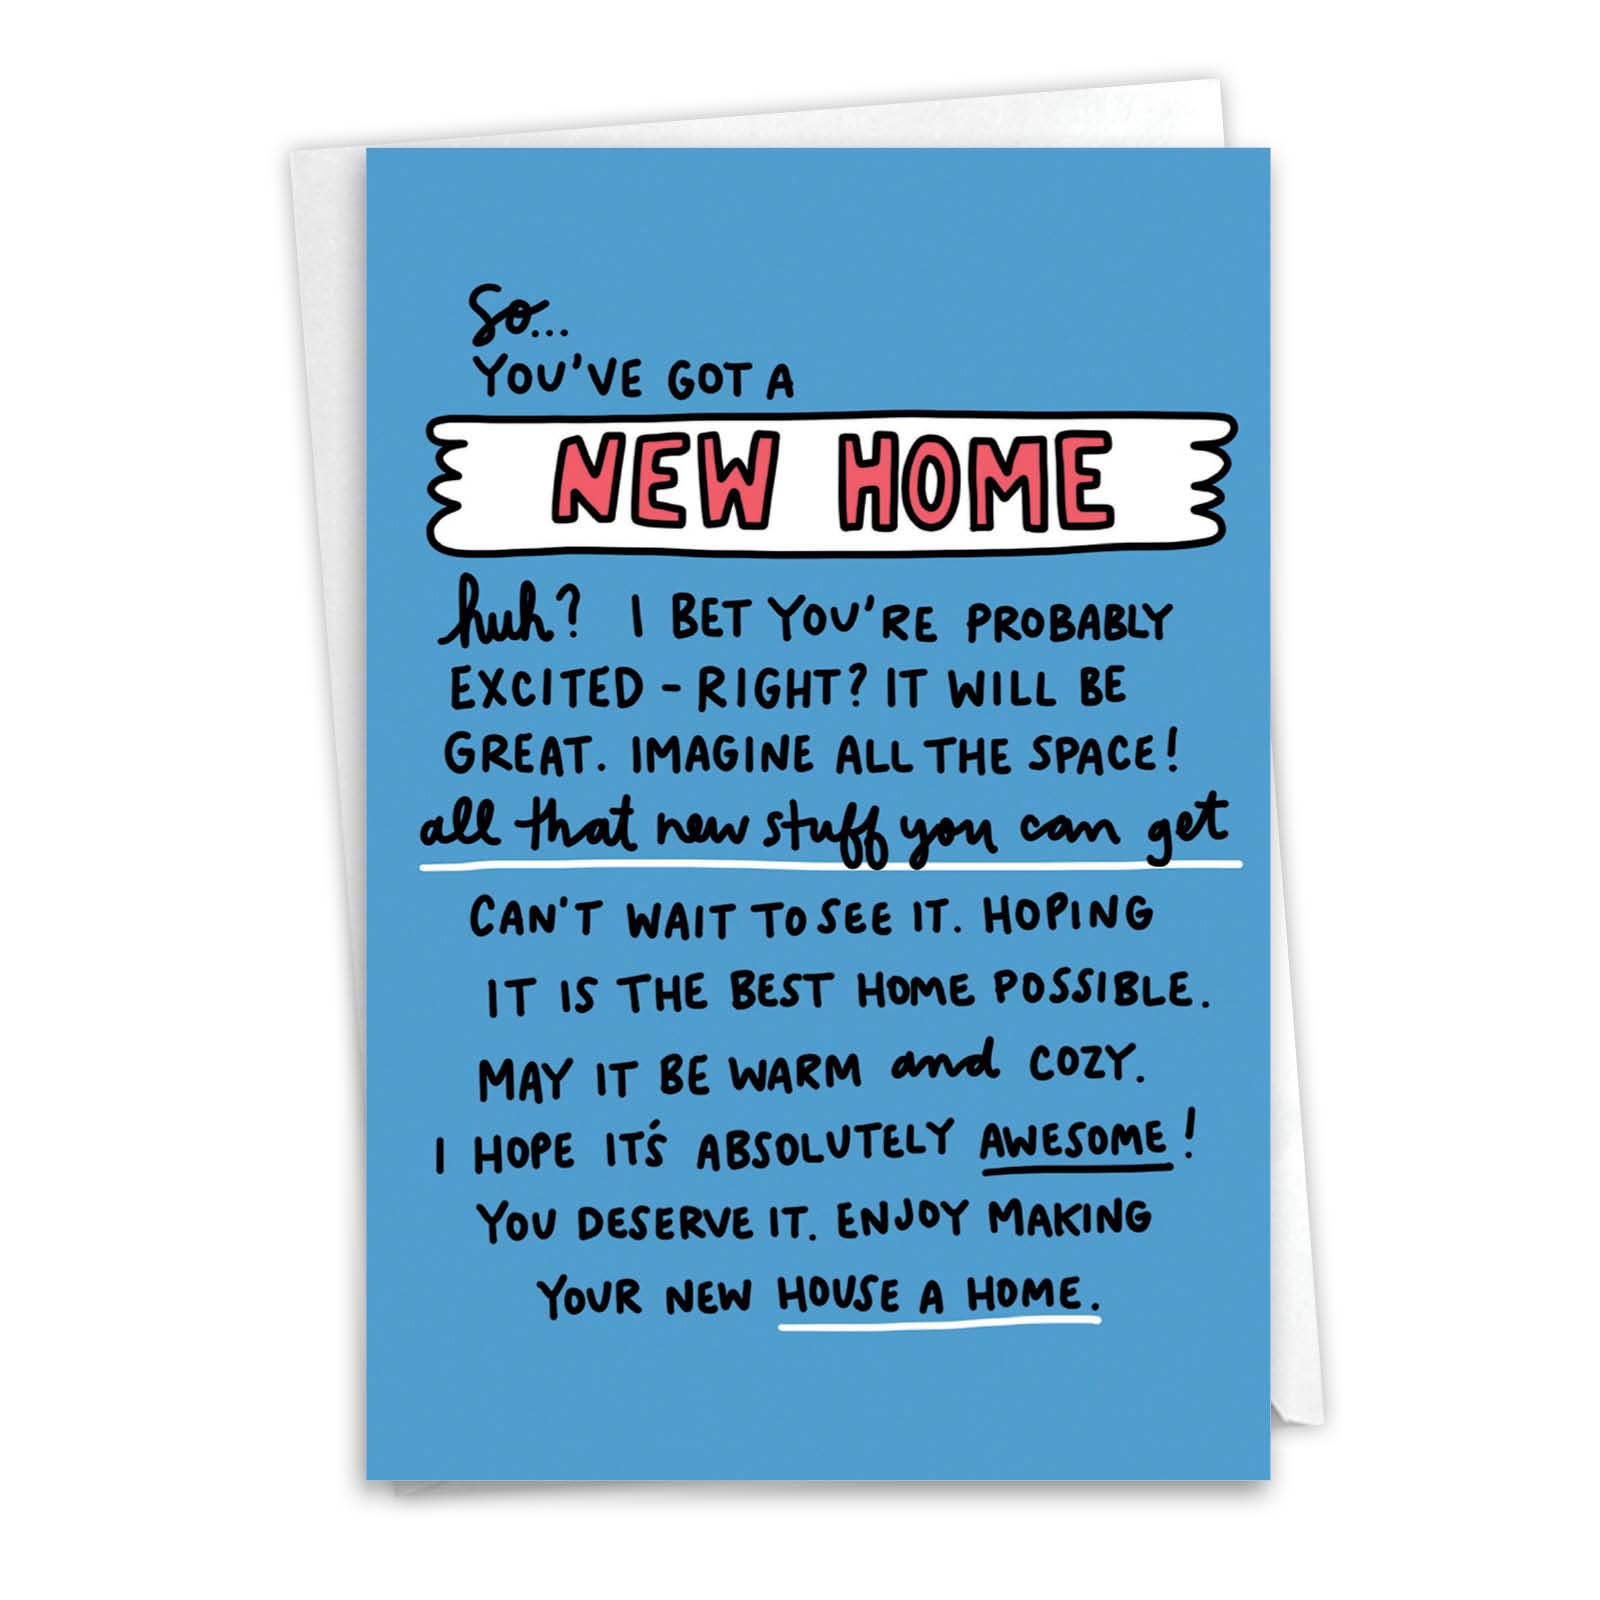 So...
YOU'VE GOT A
NEW HOME
huh? I BET YOU'RE PROBABLY
EXCITED - RIGHT? IT WILL BE
GREAT. IMAGINE ALL THE SPACE!
all that new stuff you can get
CAN'T WAIT TO SEE IT. HOPING
IT IS THE BEST HOME POSSIBLE.
MAY IT BE WARM and COZY.
I HOPE IT'S ABSOLUTELY AWESOME!
YOU DESERVE IT. ENJOY MAKING
YOUR NEW HOUSE A HOME.